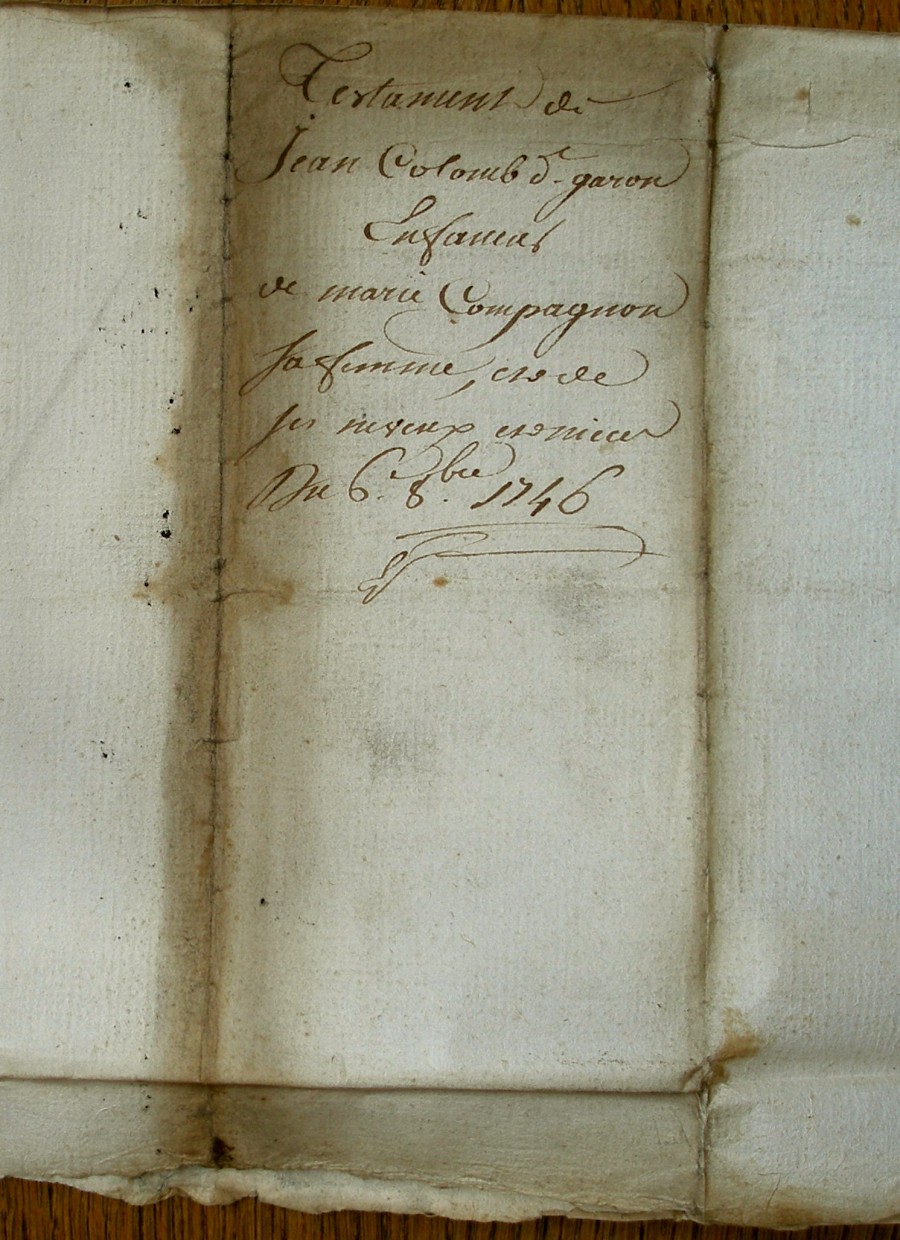 Testament de
Jean Colomb dt garon
En faveur
de marie Compagnon
sa femme, et de
ses neveux et nieces
Du 6.e 8.bre 1746